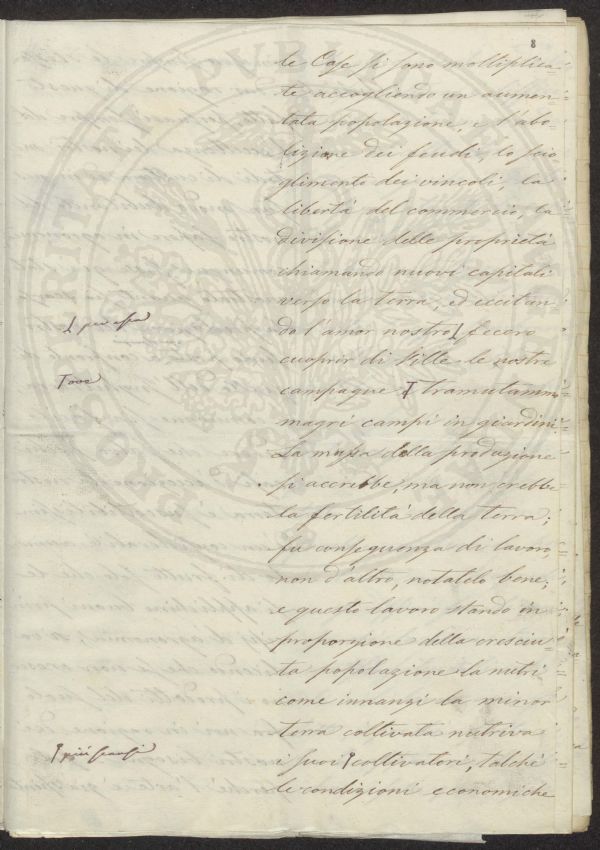 8
le Case si sono moltiplica=
te accogliendo un aumen=
tata popolazione, e l'abo=
lizione dei feudi, lo scio=
glimento dei vincoli, la
libertà del commercio, la
divisione delle proprietà
chiamando nuovi capitali
verso la terra, ed eccitan=
per essa
do l'amor nostro fecero
cuoprir di Ville le nostre
ove
campagne tramutammo
magri campi in giardini.
La massa della produzione
si accrebbe, ma non crebbe
la fertilità della terra;
fu conseguenza di lavoro,
non d'altro, notatelo bene;
e questo lavoro stando in
proporzione della cresciu=
ta popolazione la nutrì
come innanzi la minor
terra coltivata nutriva
più scarsi
i suoi coltivatori, talchè
le condizioni economiche
PROSPERITATI PUBLICAE